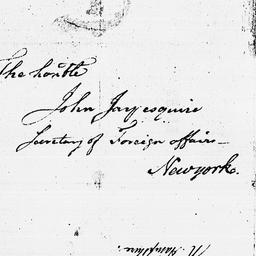 The hon'ble
John Jay esquire
Secretary of Foreign affairs
Newyork.